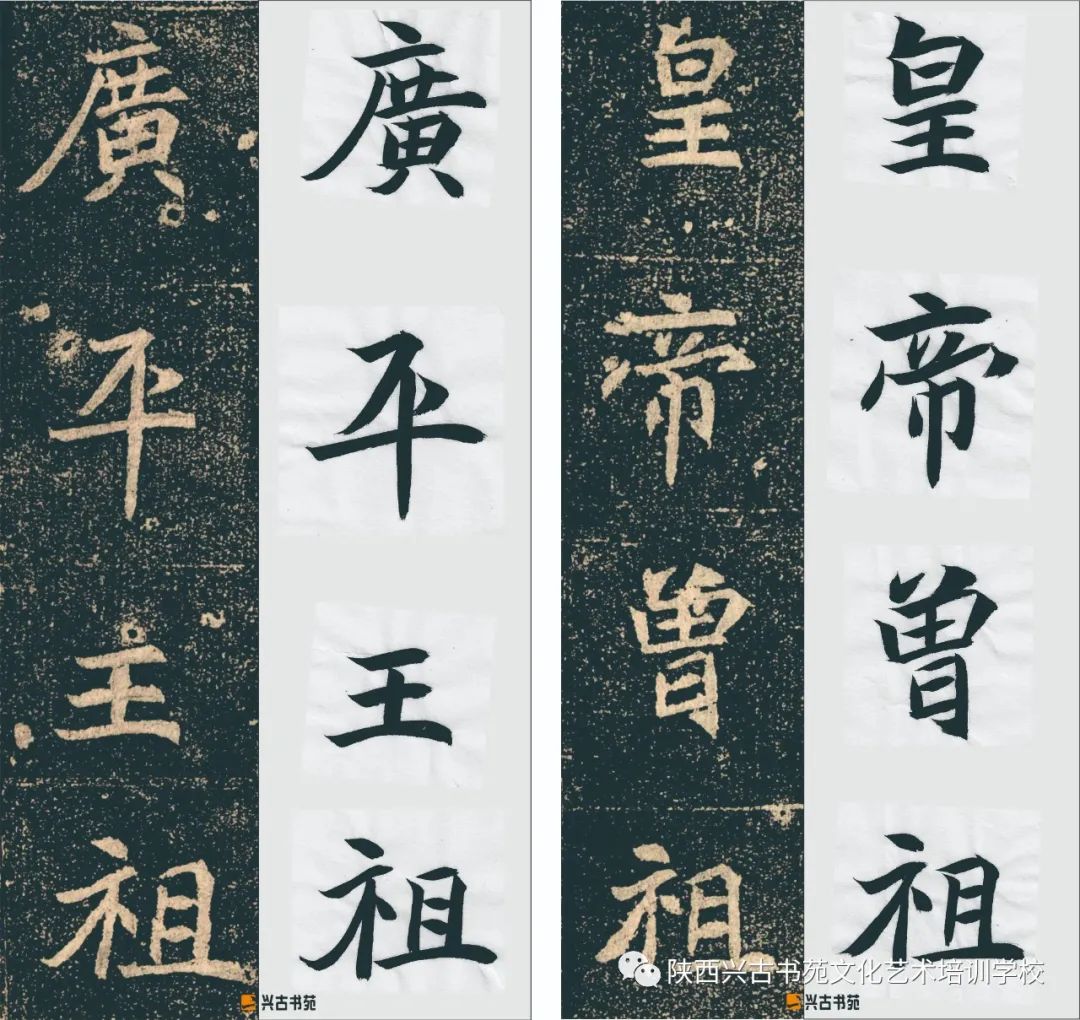 廣平王祖
廣平王祖
皇帝曾祖
皇帝曾祖
兴古书苑
兴古书苑
陕西兴古书苑文化艺术培训学校